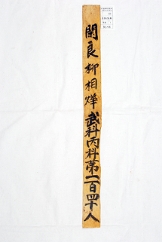 閑良柳相燁武科丙科第一百四十人